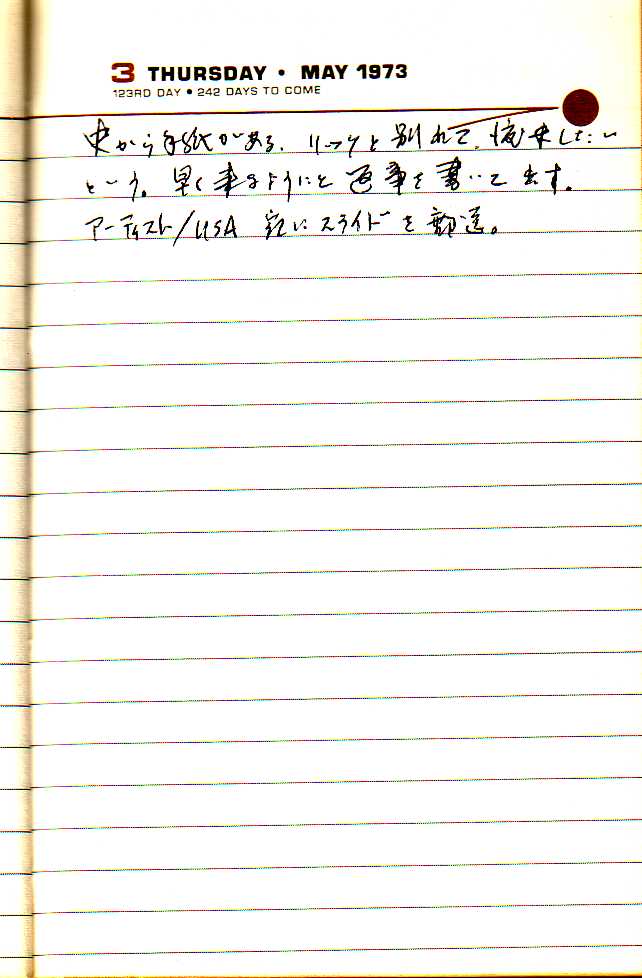 3 THURSDAY • MAY 1973
123RD DAY • 242 DAYS TO COME
史から手紙がある. リックと別れて, したい
という。早く来るようにと返事を書いて出す.
アーティスト/USA 宛にスライドを郵送。